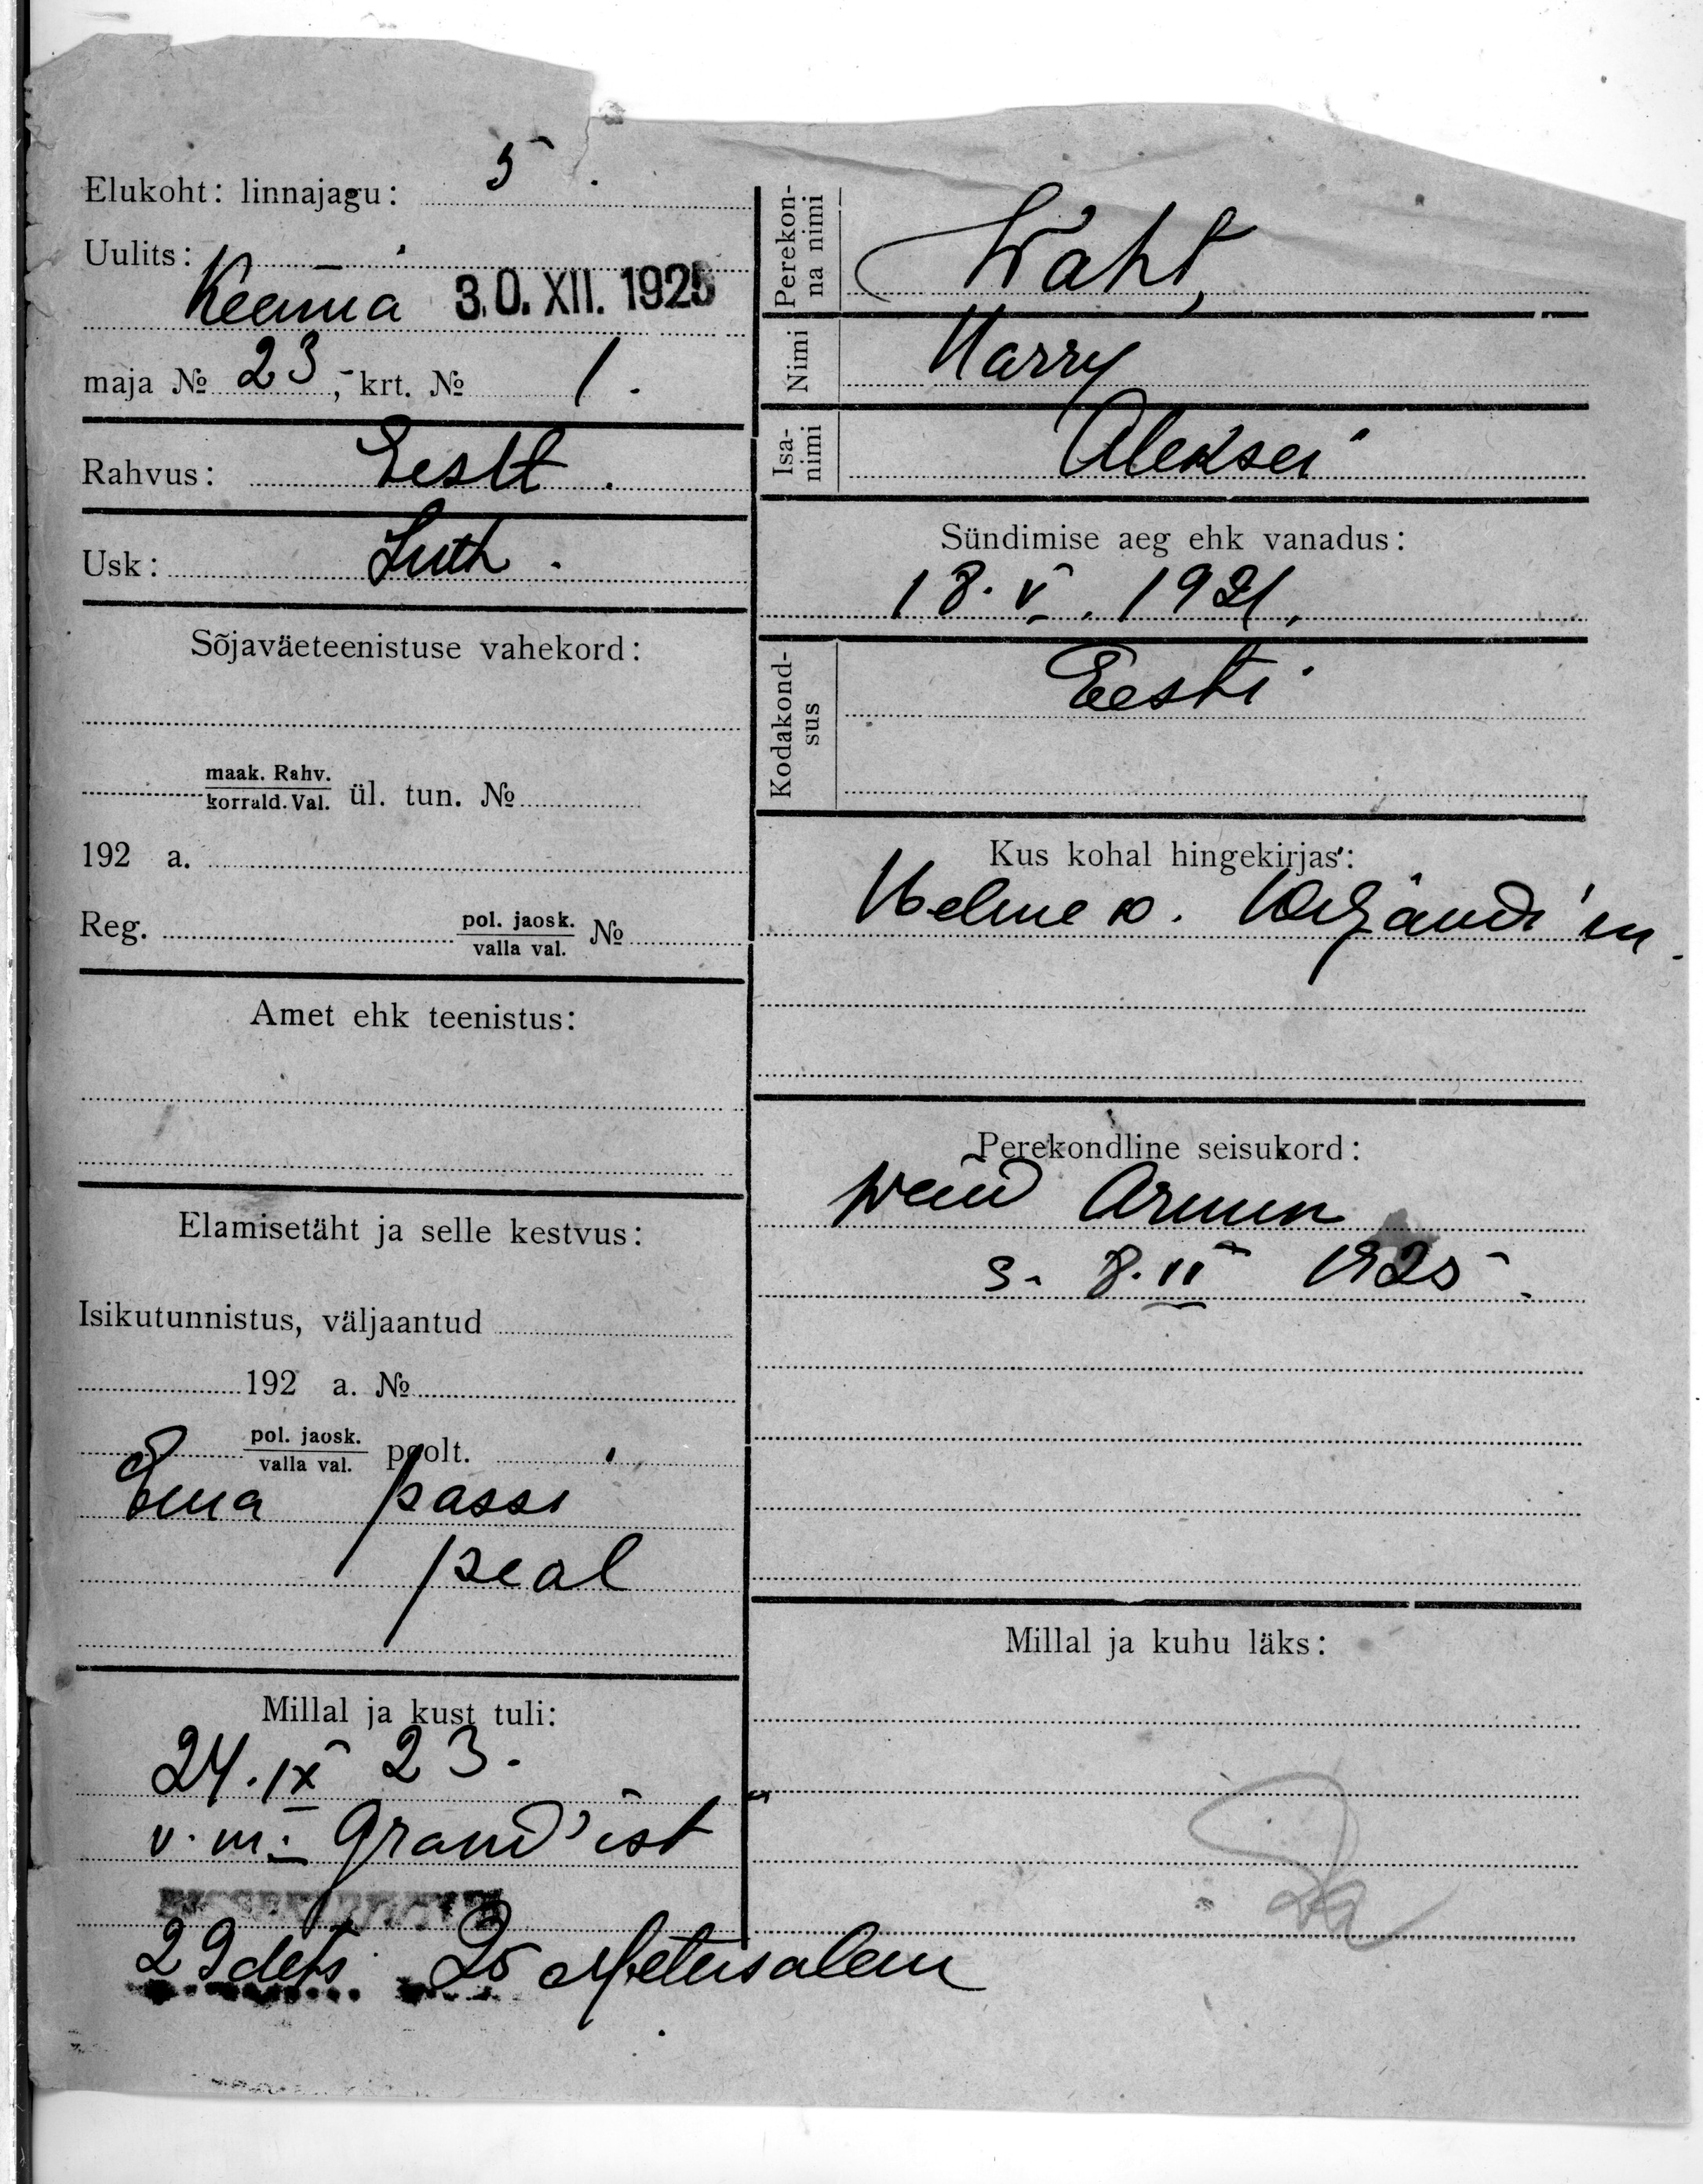 Elukoht: linnajagu: 5.
Uulits:
Keemia 30. XII. 1925
maja № 23, krt. № 1.
Rahvus: Eestl.
Usk: Luth.
Sõjaväeteenistuse vahekord:
maak. Rahv.
korrald. Val. ül. tun. №
192 a.
Reg. pol. jaosk.
valla val. №
Amet ehk teenistus:
Elamisetäht ja selle kestvus:
Isikutunnistus, väljaantud
192 a. №
pol. jaosk.
valla val. poolt.
Ema passi
peal
Millal ja kust tuli:
24. IX 23.
v. m. Grand'ist
29 dets. 25 Metusalem
Perekon-
na nimi
Waht,
Nimi
Harry
Isa-
nimi
Aleksei
Sündimise aeg ehk vanadus:
18. V. 1921.
Kodakond-
sus
Eesti
Kus kohal hingekirjas:
Helme v. Viljandi m.
Perekondline seisukord:
wend Armin
s. 8. II 1925.
Millal ja kuhu läks: